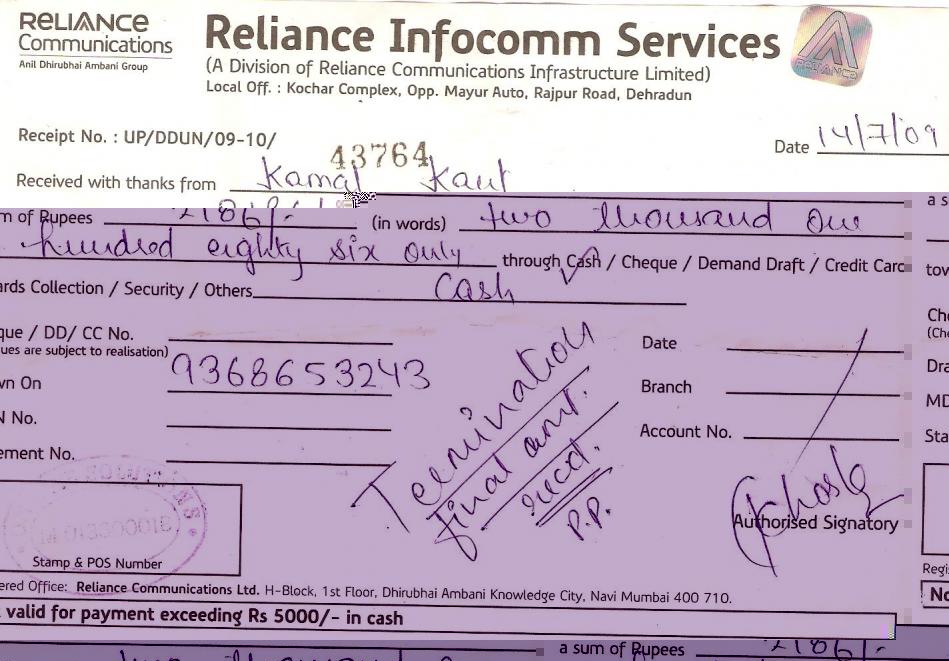 RELIANCE
Communications
Anil Dhirubhai Ambani Group
Reliance Infocomm Services
(A Division of Reliance Communications Infrastructure Limited)
Local Off. : Kochar Complex, Opp. Mayur Auto, Rajpur Road, Dehradun
RELIANCE
Receipt No. : UP/DDUN/09-10/
43764
Date 14/7/09
Received with thanks from Kamal Kant
a s
m of Rupees 2186/- (in words) two thousand one
hundred eighty six only through Cash / Cheque / Demand Draft / Credit Card
tow
ards Collection / Security / Others Cash
que / DD/ CC No.
ues are subject to realisation)
Date
Che
(Che
wn On 9368653243
Branch
Dra
N No.
MD
ement No.
Account No.
Sta
Termination
final amt.
recd.
P.P.
Authorised Signatory
Stamp & POS Number
ered Office: Reliance Communications Ltd. H-Block, 1st Floor, Dhirubhai Ambani Knowledge City, Navi Mumbai 400 710.
Regi
valid for payment exceeding Rs 5000/- in cash
No
a sum of Rupees 2186/-